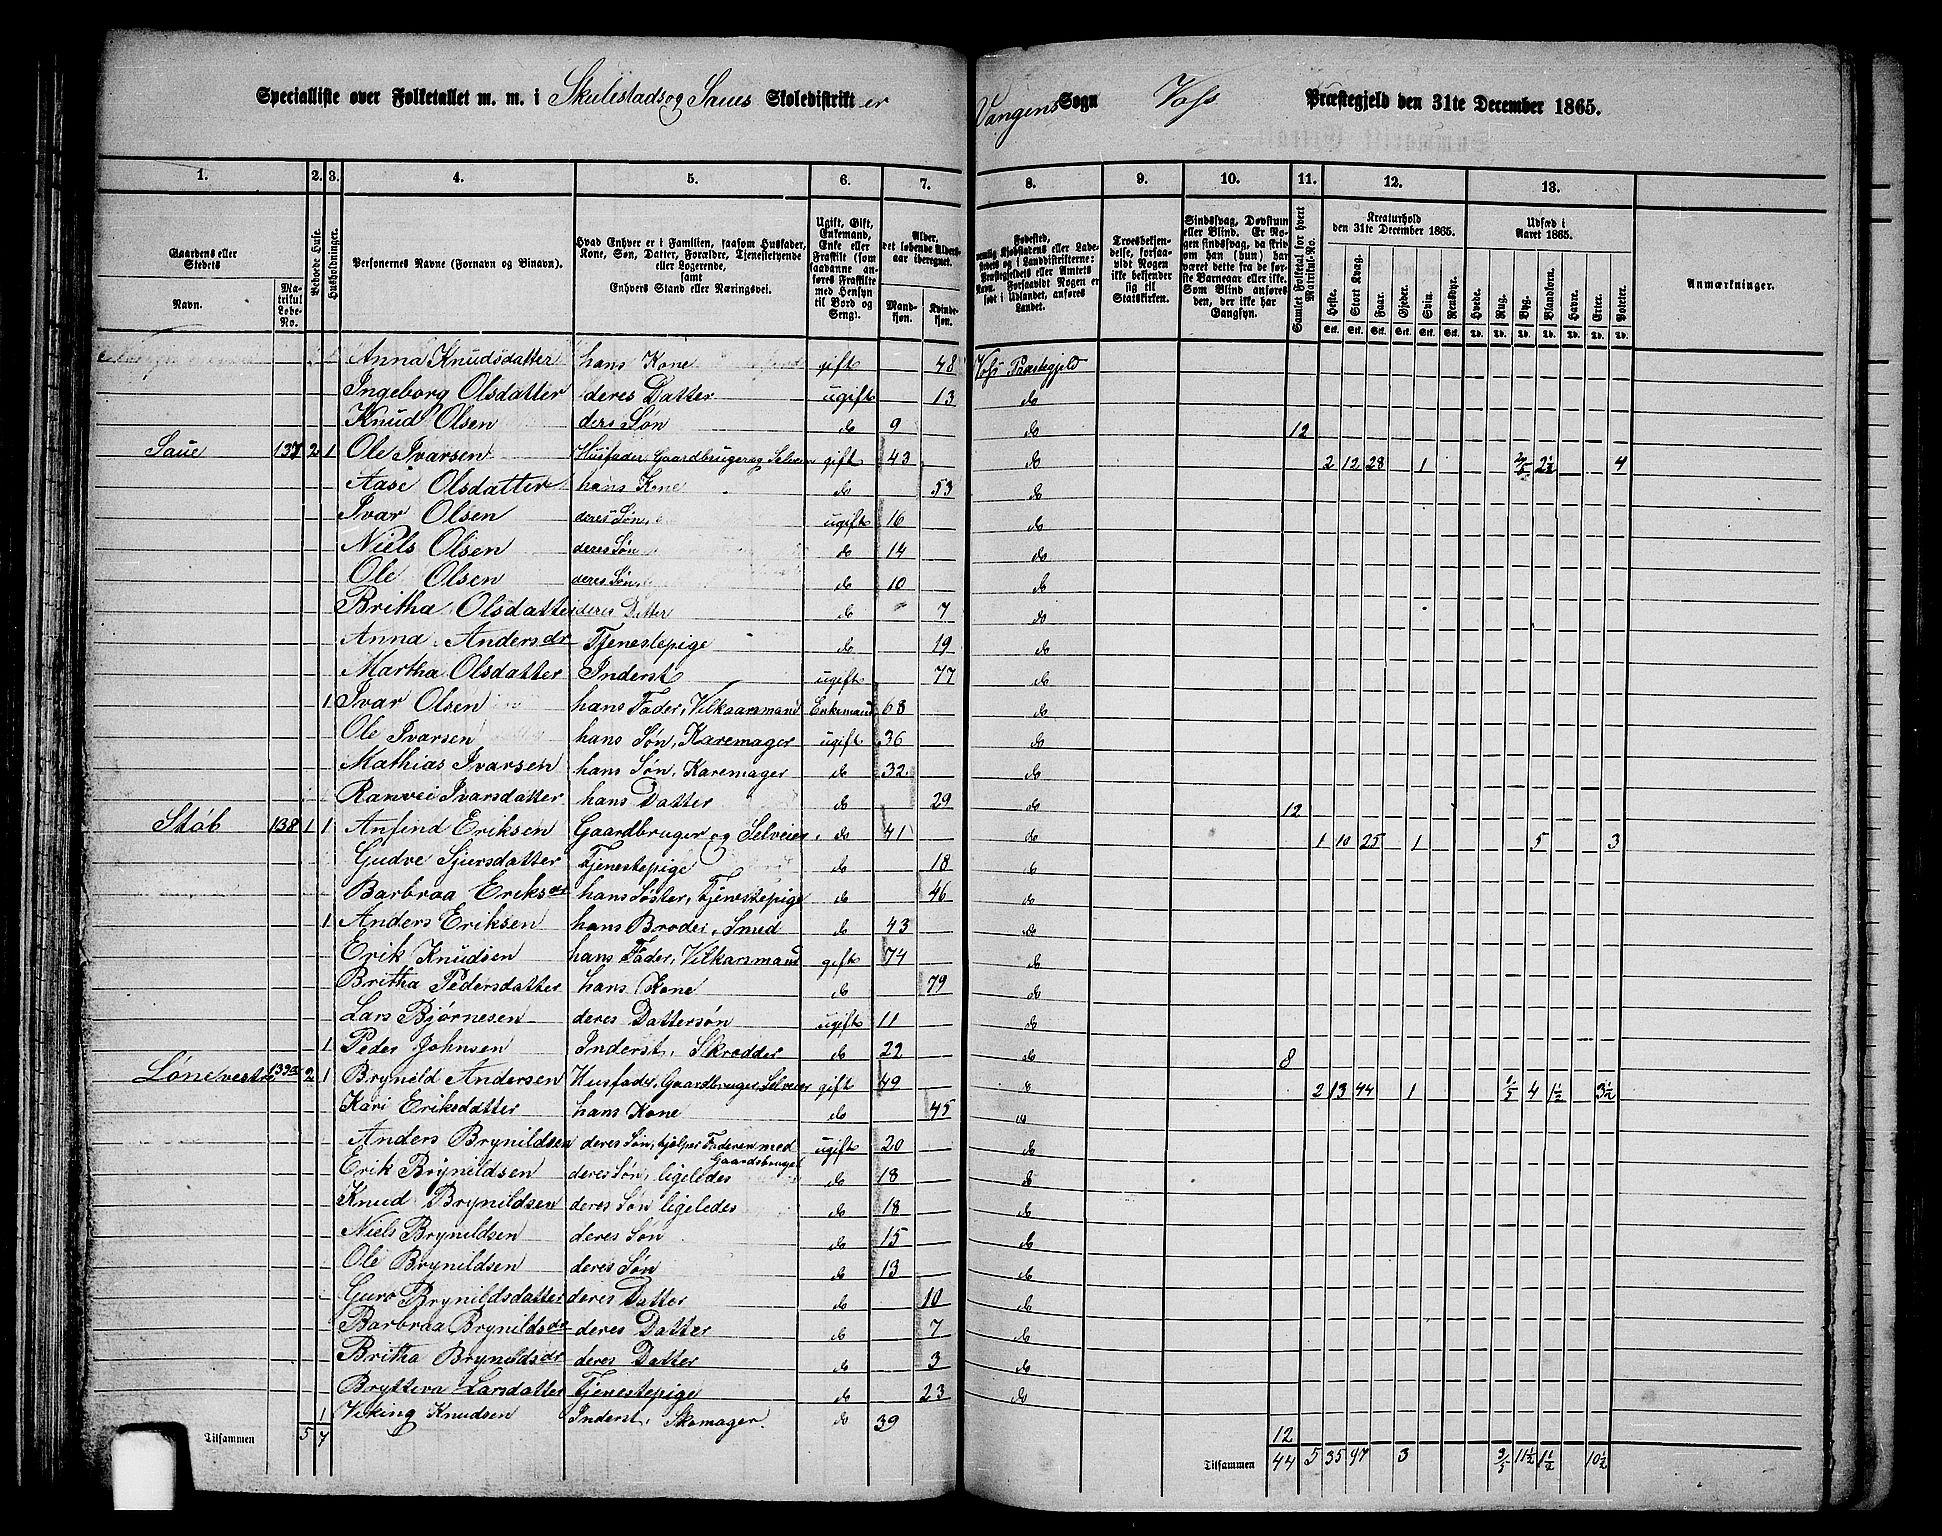 Specialliste over Folketallet m. m. i Skulestads og Saues Skoledistrikter Vangens Sogn Voss Præstegjeld den 31te December 1865.
1. 2. 3. 4. 5. 6. 7. 8. 9. 10. 11. 12. 13.
Gaardens eller Stedets
Navn. Matrikul Løbe-No.
Beboede Huse.
Husholdninger.
Personernes Navne (Fornavn og Binavn).
Hvad Enhver er i Familien, saasom Husfader, Kone, Søn, Datter, Forældre, Tjenestetyende eller Logerende, samt Enhvers Stand eller Næringsvei.
Ugift, Gift, Enkemand, Enke eller Fraskilt (som saadanne anføres Fraskilte med Hensyn til Bord og Seng).
Alder, det løbende Aldersaar iberegnet.
Mandkjøn. Kvindekjøn.
Fødested, nemlig Kjøbstadens eller Ladestedets eller i Landdistrikterne: Præstegjeldets eller Amtets Navn. Forsaavidt Nogen er født i Udlandet, anføres Landet.
Troesbekjendelse, forsaavidt Nogen ikke bekjender sig til Statskirken.
Sindssvag, Døvstum eller Blind. Er Nogen sindssvag, da skrives om han (hun) har været dette fra de første Barneaar eller ikke. Som Blind anføres den, der ikke har Gangsyn.
Samlet Folketal for hvert Matrikul-No.
Kreaturhold den 31te December 1865.
Heste. Stort Kvæg. Faar. Gjeder. Svin. Rensdyr.
Udsæd i Aaret 1865.
Hvede. Rug. Byg. Blandkorn. Havre. Erter. Poteter.
Anmærkninger.
Anna Knudsdatter hans Kone gift 48 Voss Præstegjeld
Ingeborg Olsdatter deres Datter ugift 13 do
Knud Olsen deres Søn do 9 do 12
Saue 137 2 1 Ole Ivarsen Husfader, Gaardbruger og Selveier gift 43 do 2 12 28 1 2/5 2½ 4
Aase Olsdatter hans Kone do 53 do
Ivar Olsen deres Søn ugift 16 do
Niels Olsen deres Søn do 14 do
Ole Olsen deres Søn do 10 do
Britha Olsdatter deres Datter do 7 do
Anna Andersdr Tjenestepige do 19 do
Martha Olsdatter Inderst ugift 77 do
1 Ivar Olsen hans Fader, Vilkaarsmand Enkemand 68 do
Ole Ivarsen hans Søn, Karemager ugift 36 do
Mathias Ivarsen hans Søn, Karemager do 32 do
Ranvei Ivarsdatter hans Datter do 29 do 12
Støb 138 1 1 Anfind Eriksen Gaardbruger og Selveier do 41 do 1 10 25 1 5 3
Gudve Sjursdatter Tjenestepige do 18 do
Barbraa Eriksdr hans Søster, Tjenestepige do 46 do
1 Anders Eriksen hans Broder, Smed do 43 do
Erik Knudsen hans Fader, Vilkarsmand gift 74 do
Britha Pedersdatter hans Kone do 79 do
Lars Bjørnesen deres Dattersøn ugift 11 do
1 Peder Johnsen Inderst, Skrædder do 22 do 8
Løne vestre 139a 2 1 Brynild Andersen Husfader, Gaardbruger Selveier gift 49 do 2 13 44 1 1/5 4 1½ 3½
Kari Eriksdatter hans Kone do 45 do
Anders Brynildsen deres Søn, hjelper Faderen med Gaardsbruget ugift 20 do
Erik Brynildsen deres Søn, ligeledes do 18 do
Knud Brynildsen deres Søn ligeledes do 18 do
Niels Brynildsen deres Søn do 15 do
Ole Brynildsen deres Søn do 13 do
Guro Brynildsdatter deres Datter do 10 do
Barbraa Brynildsdr deres Datter do 7 do
Britha Brynildsdr deres Datter do 3 do
Brytteva Larsdatter Tjenestepige do 23 do
1 Viking Knudsen Inderst, Skomager do 39 12
Tilsammen 5 7 Tilsammen 44 5 35 97 3 3/5 11½ 1½ 10½